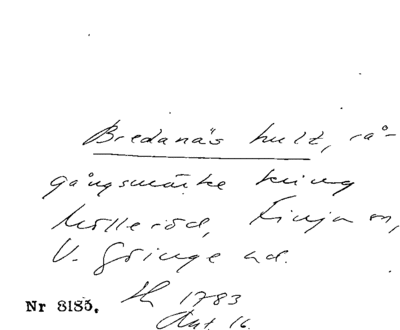 Bredanäs hult, rå-
gångsmärke kring
Mölleröd, Finja sn,
V. Göinge hd.
Nr 8185. Sk 1783
Akt. 16.